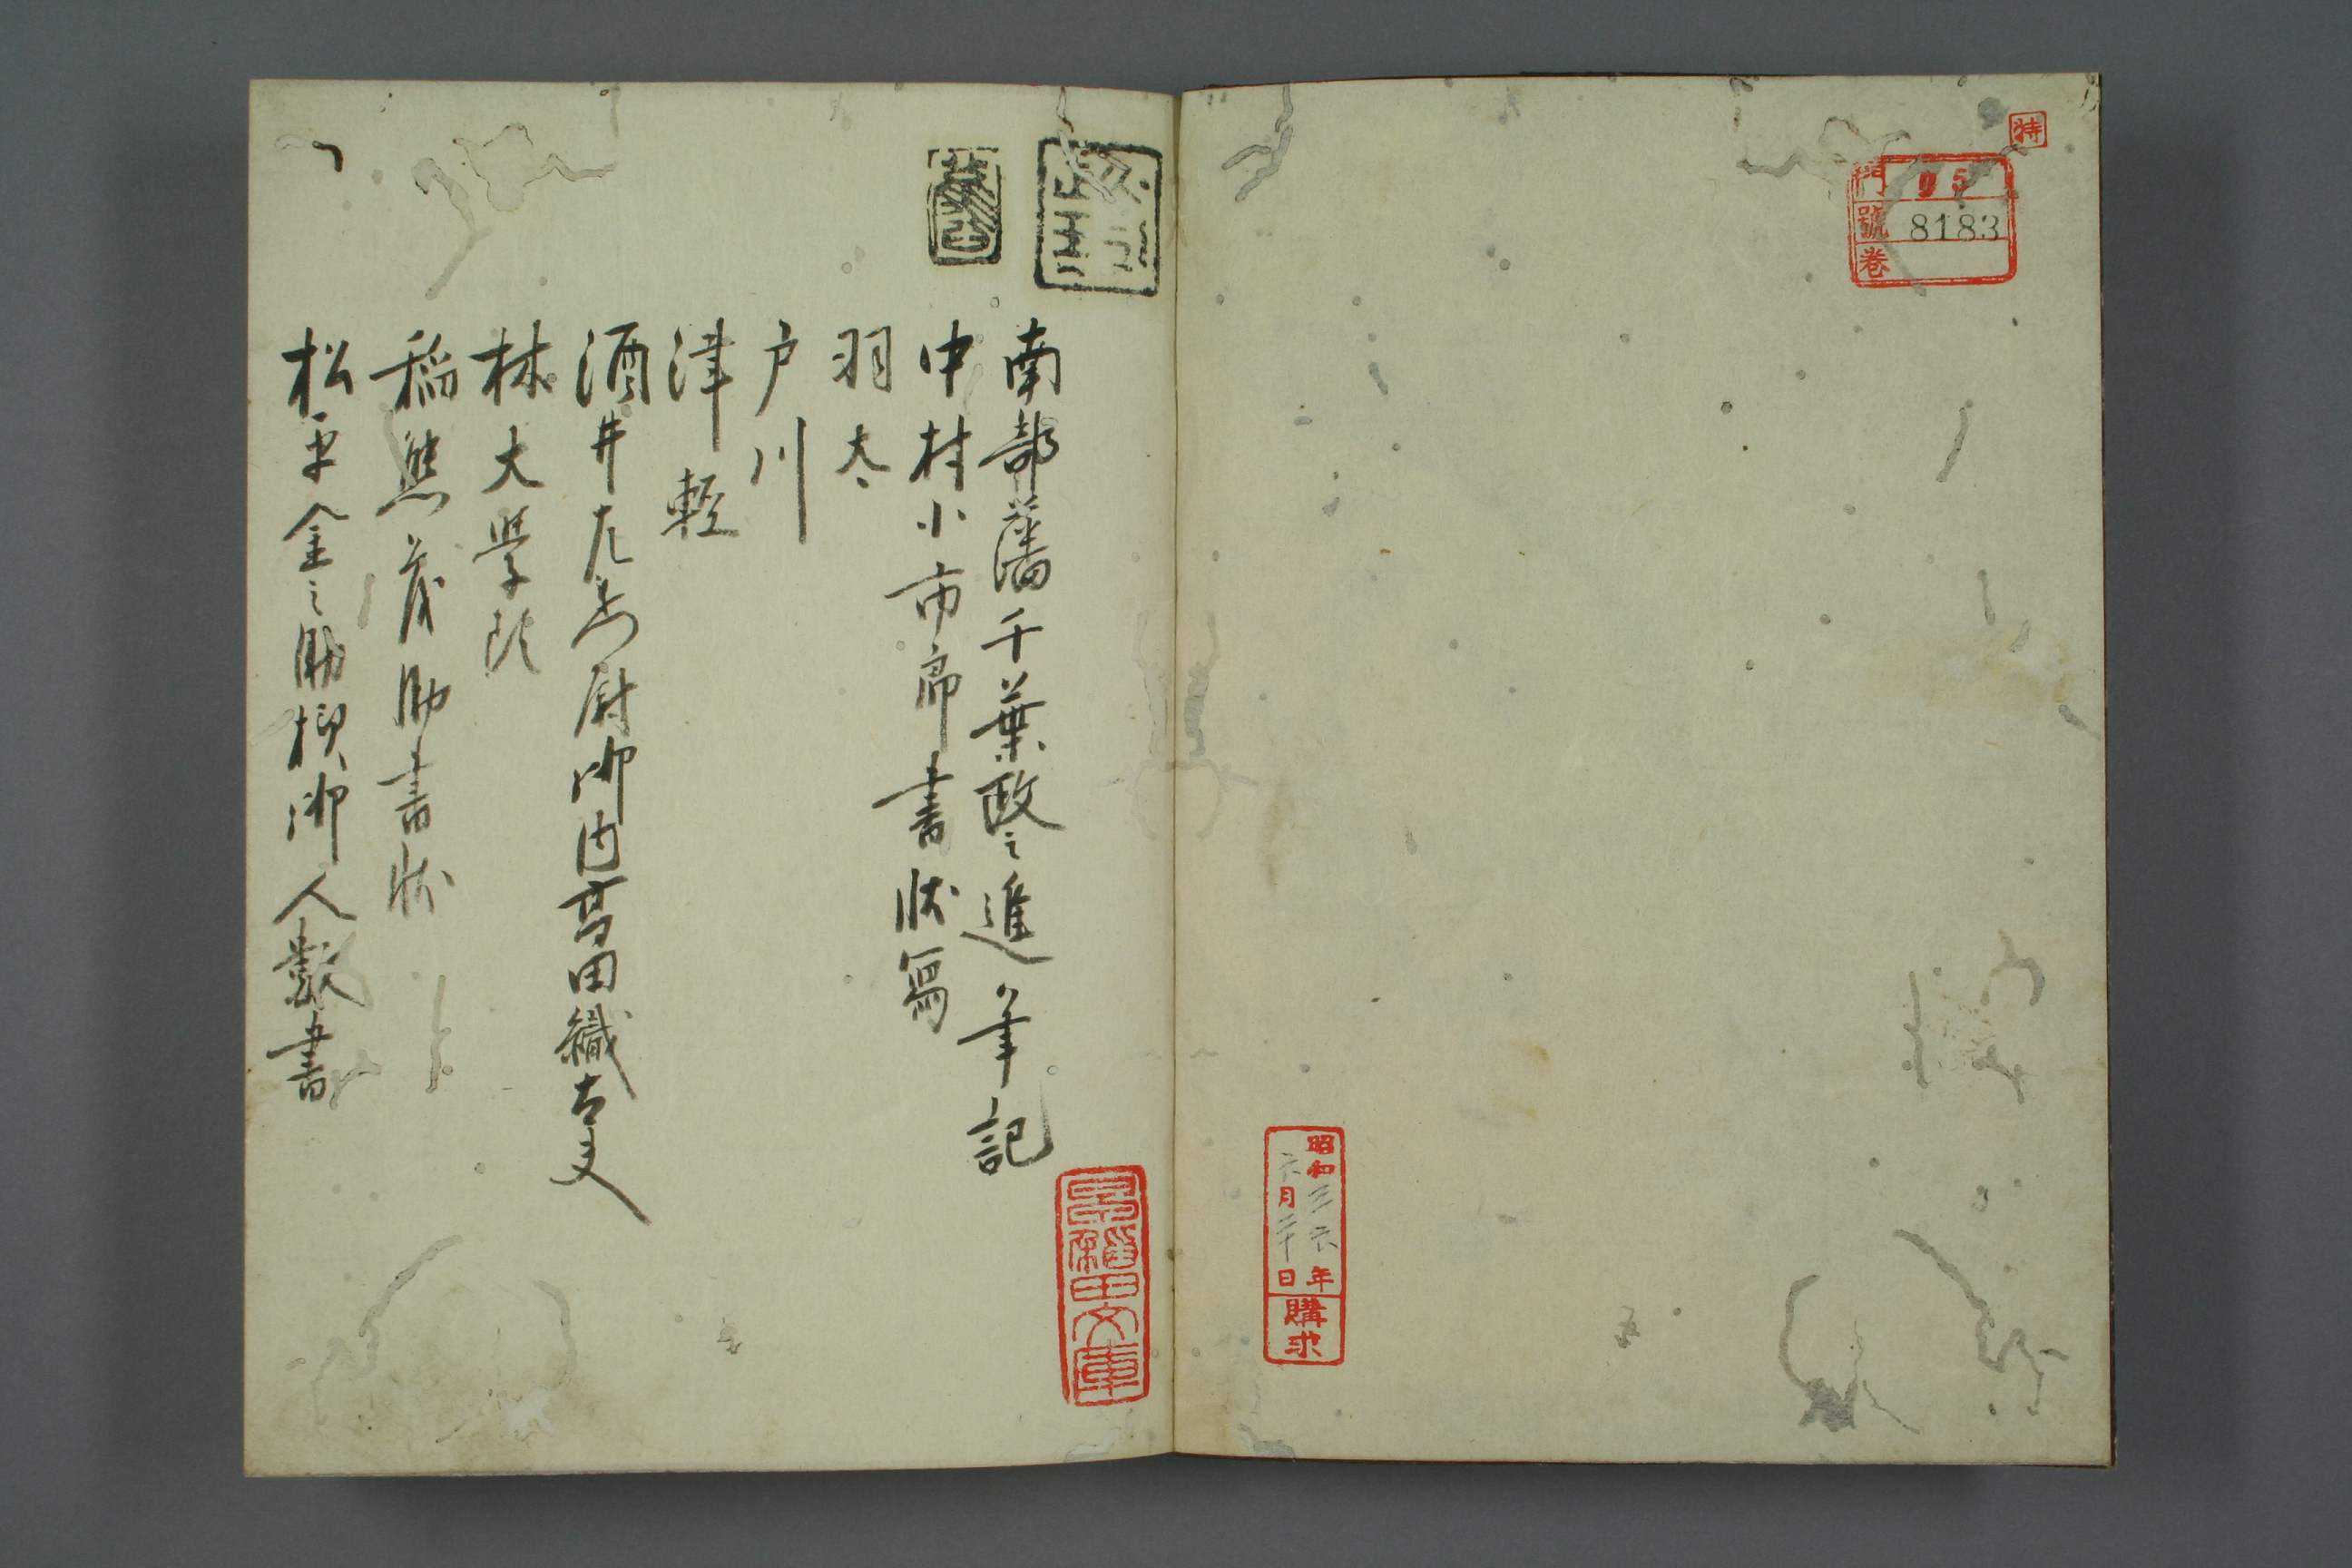 特
門 05
號 8183
巻
昭和三六年
六月二十日
購求
南部藩千葉政之進筆記
中村小市郎書状寫
羽太
戸川
津輕
酒井左衛門尉御内菅田織古夫
林大學頭
稲熊茂助書状
松平金之助様御人數書
早稲田文庫